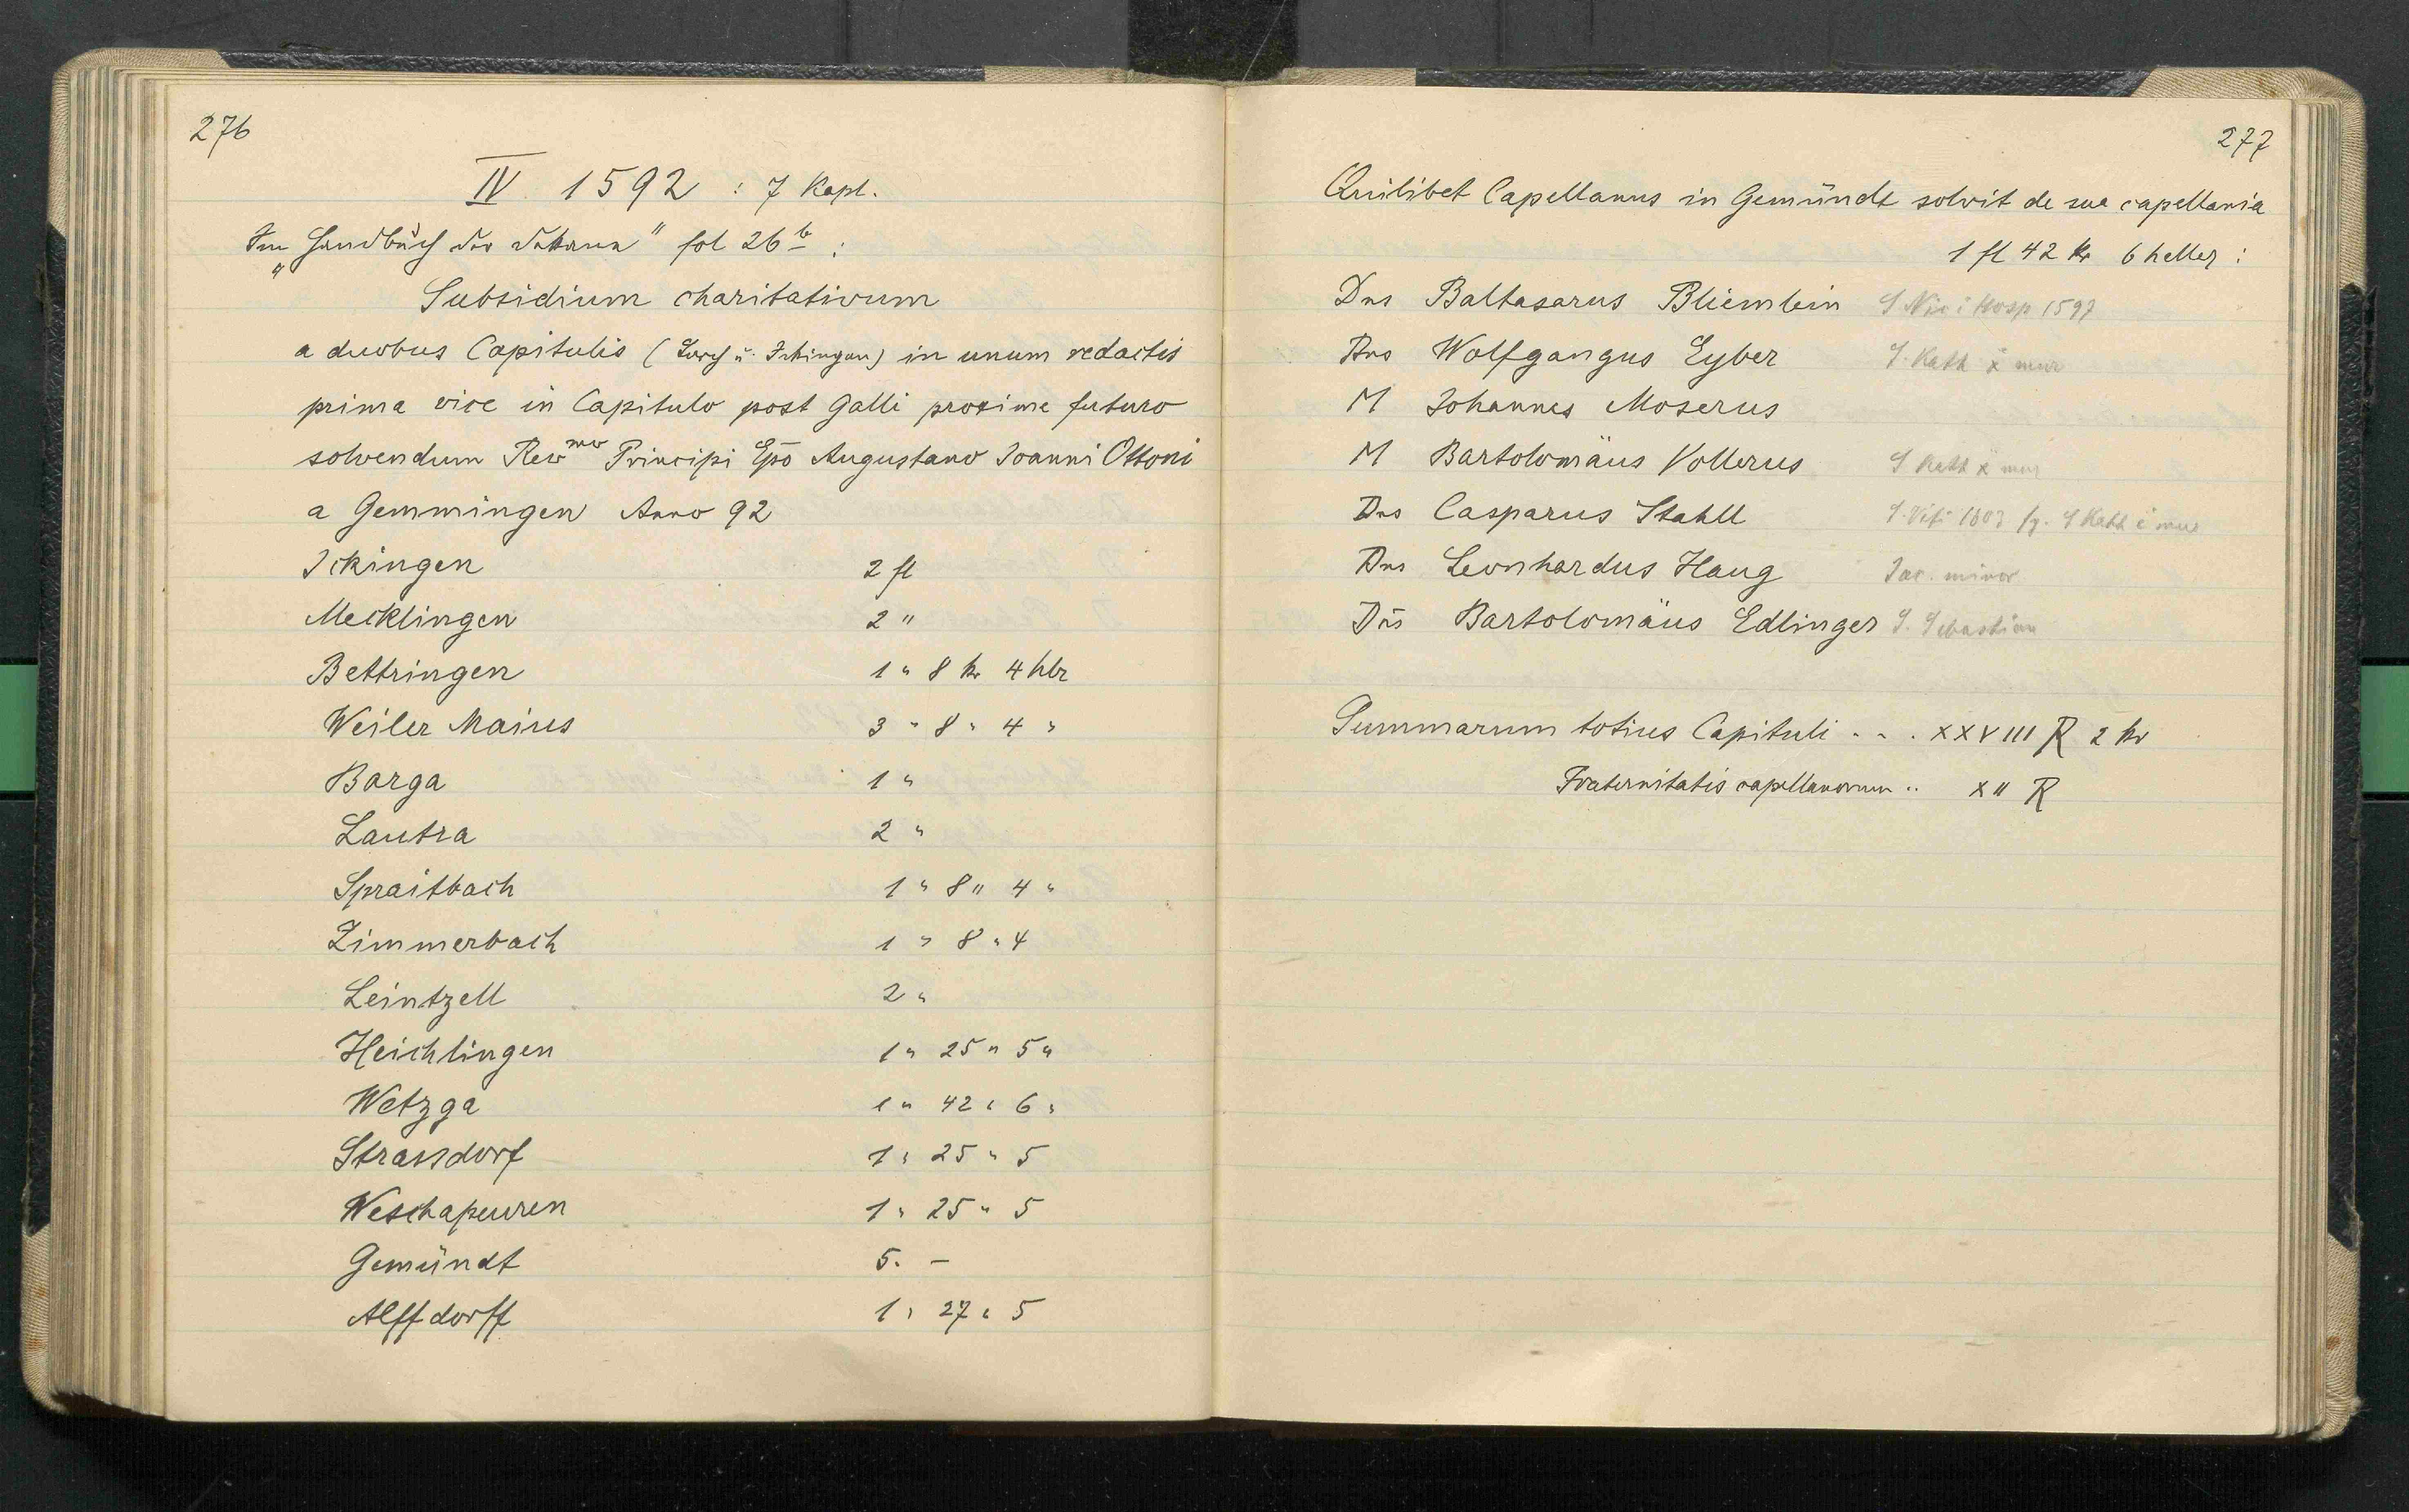 276
IV 1592 : 7 Kapl.
Im „Handbuch der Dekane" fol 26b :
Subsidium charitativum
a duobus Capitulis (Lorch u. Ickingen) in unum redactis
prima vice in Capitulo post Galli proxime futuro
solvendum Revmo Principi Epō Augustano Joanni Ottoni
a Gemmingen Anno 92
Ickingen 2 fl
Mecklingen 2 "
Bettringen 1 " 8 kr 4 hlr
Weiler Maius 3 " 8 " 4 "
Barga 1 "
Lautra 2 "
Spraitbach 1 " 8 " 4 "
Zimmerbach 1 " 8 " 4
Leintzell 2 "
Heichlingen 1 " 25 " 5 "
Wetzga 1 " 42 " 6 "
Strassdorf 1 " 25 " 5
Weschapeuren 1 " 25 " 5
Gemündt 5. –
Alffdorff 1 " 27 " 5
277
Quilibet Capellanus in Gemündt solvit de sua capellania
1 fl 42 kr 6 heller :
Dns Baltasarus Bliemlein S Nic i Hosp 1597
Dns Wolfgangus Eyber S. Kath x mur
M Johannes Moserus
M Bartolomäus Vollerus S Kath x mur
Dns Casparus Stahll S. Viti 1603 S Kath e mur
Dns Leonhardus Haug Jac. minor
Dn̄s Bartolomäus Edlinger S. Sebastian
Summarum totius Capituli . . . XXVIII R 2 kr
Fraternitatis capellanorum .. XII R